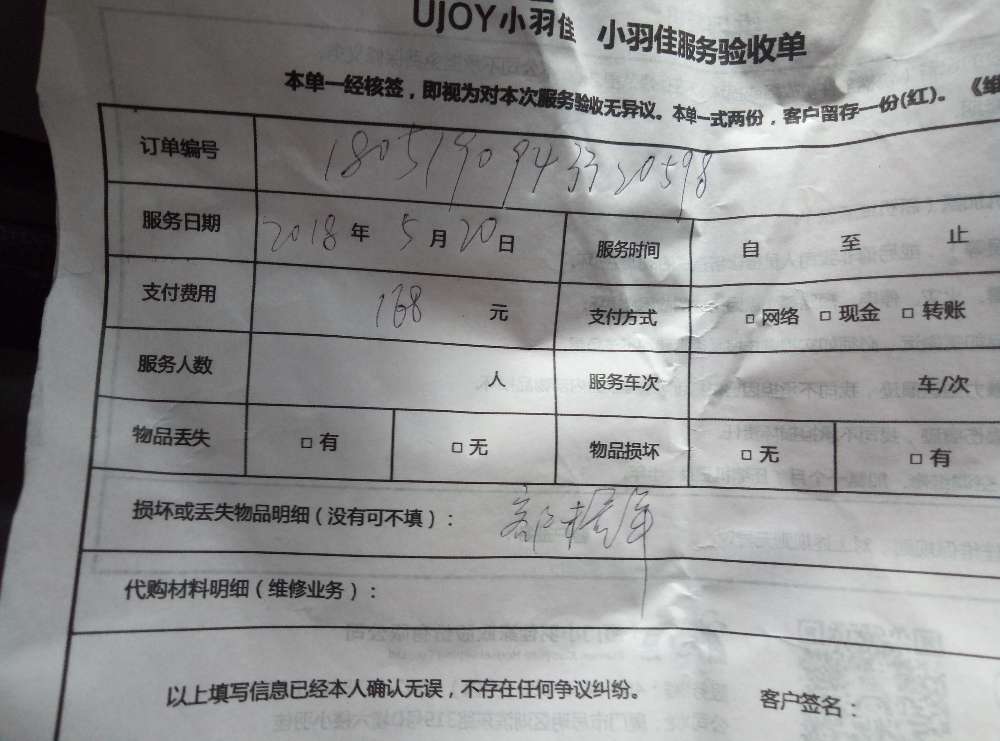 UJOY小羽佳 小羽佳服务验收单
本单一经核签，即视为对本次服务验收无异议。本单一式两份，客户留存一份(红)。《维
订单编号 18051909433320598
服务日期 2018年 5月20日 服务时间 自 至 止
支付费用 168 元 支付方式 □网络 □现金 □转账
服务人数 人 服务车次 车/次
物品丢失 □有 □无 物品损坏 □无 □有
损坏或丢失物品明细（没有可不填）：
代购材料明细（维修业务）：
以上填写信息已经本人确认无误，不存在任何争议纠纷。 客户签名：